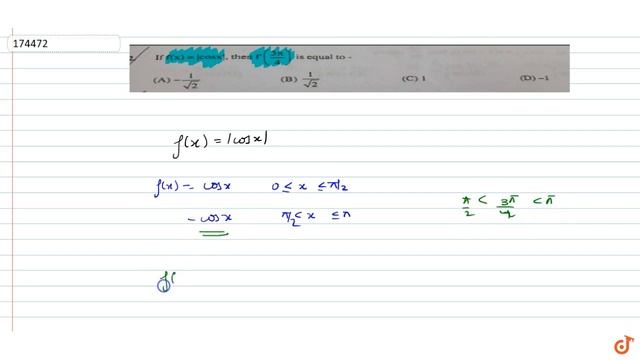 174472
If f(x) = |cosx|, then f' (3π/4) is equal to -
(A) -1/√2 (B) 1/√2 (C) 1 (D) -1
f(x) = |cosx|
f(x) = cosx 0 ≤ x ≤ π/2
- cosx π/2 < x ≤ π
π/2 < 3π/4 < π
f(
doubtnut